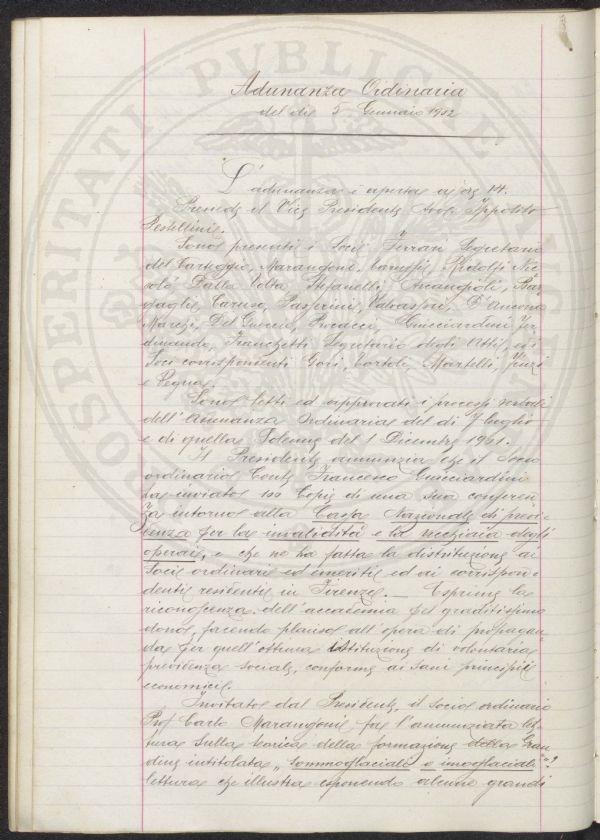 Adunanza Ordinaria
del dì 5 Gennaio 1902
L'adunanza è aperta a ore 14.
Presiede il Vice Presidente Prof. Ippolito
Pestellini.
Sono presenti i Soci Ferrari Segretario
del Carteggio, Marangoni, Ridolfi Nic
colò, Dalla Volta, Stefanelli, Arcangioli, Bar
gagli, Caruso, Passerini, Valvassori, D'Ancona
Marchi, Del Guercio, Pucacci, Guicciardini Fer
dinando, Franchetti Segretario degli Atti, ed i
Soci corrispondenti Gori, Bartoli, Martelli,
e Pegna.
Sono letti ed approvati i processi verbali
dell'Adunanza Ordinaria del dì 7 luglio
e di quella Solenne del 1 Dicembre 1901.
Il Presidente annunzia che il Socio
ordinario Conte Francesco Guicciardini
ha inviato 100 Copie di una sua conferen
za intorno alla Cassa Nazionale di previ-
denza per la invalidità e la vecchiaia degli
operai, e che ne ha fatta la distribuzione ai
Soci ordinari ed emeriti ed ai corrispon-
denti residenti in Firenze. — Esprime la
riconoscenza dell'accademia pel graditissimo
dono, facendo plauso all'opera di propagan
da per quell'ottima istituzione di volontaria
previdenza sociale, conforme ai sani principii
economici.
Invitato dal Presidente, il socio ordinario
Prof Carlo Marangoni fa l'annunziata let
tura sulla teorica della formazione della Gran
dine intitolata "
lettura che illustra esponendo alcuni grandi
PROSPERITATI PUBLICAE